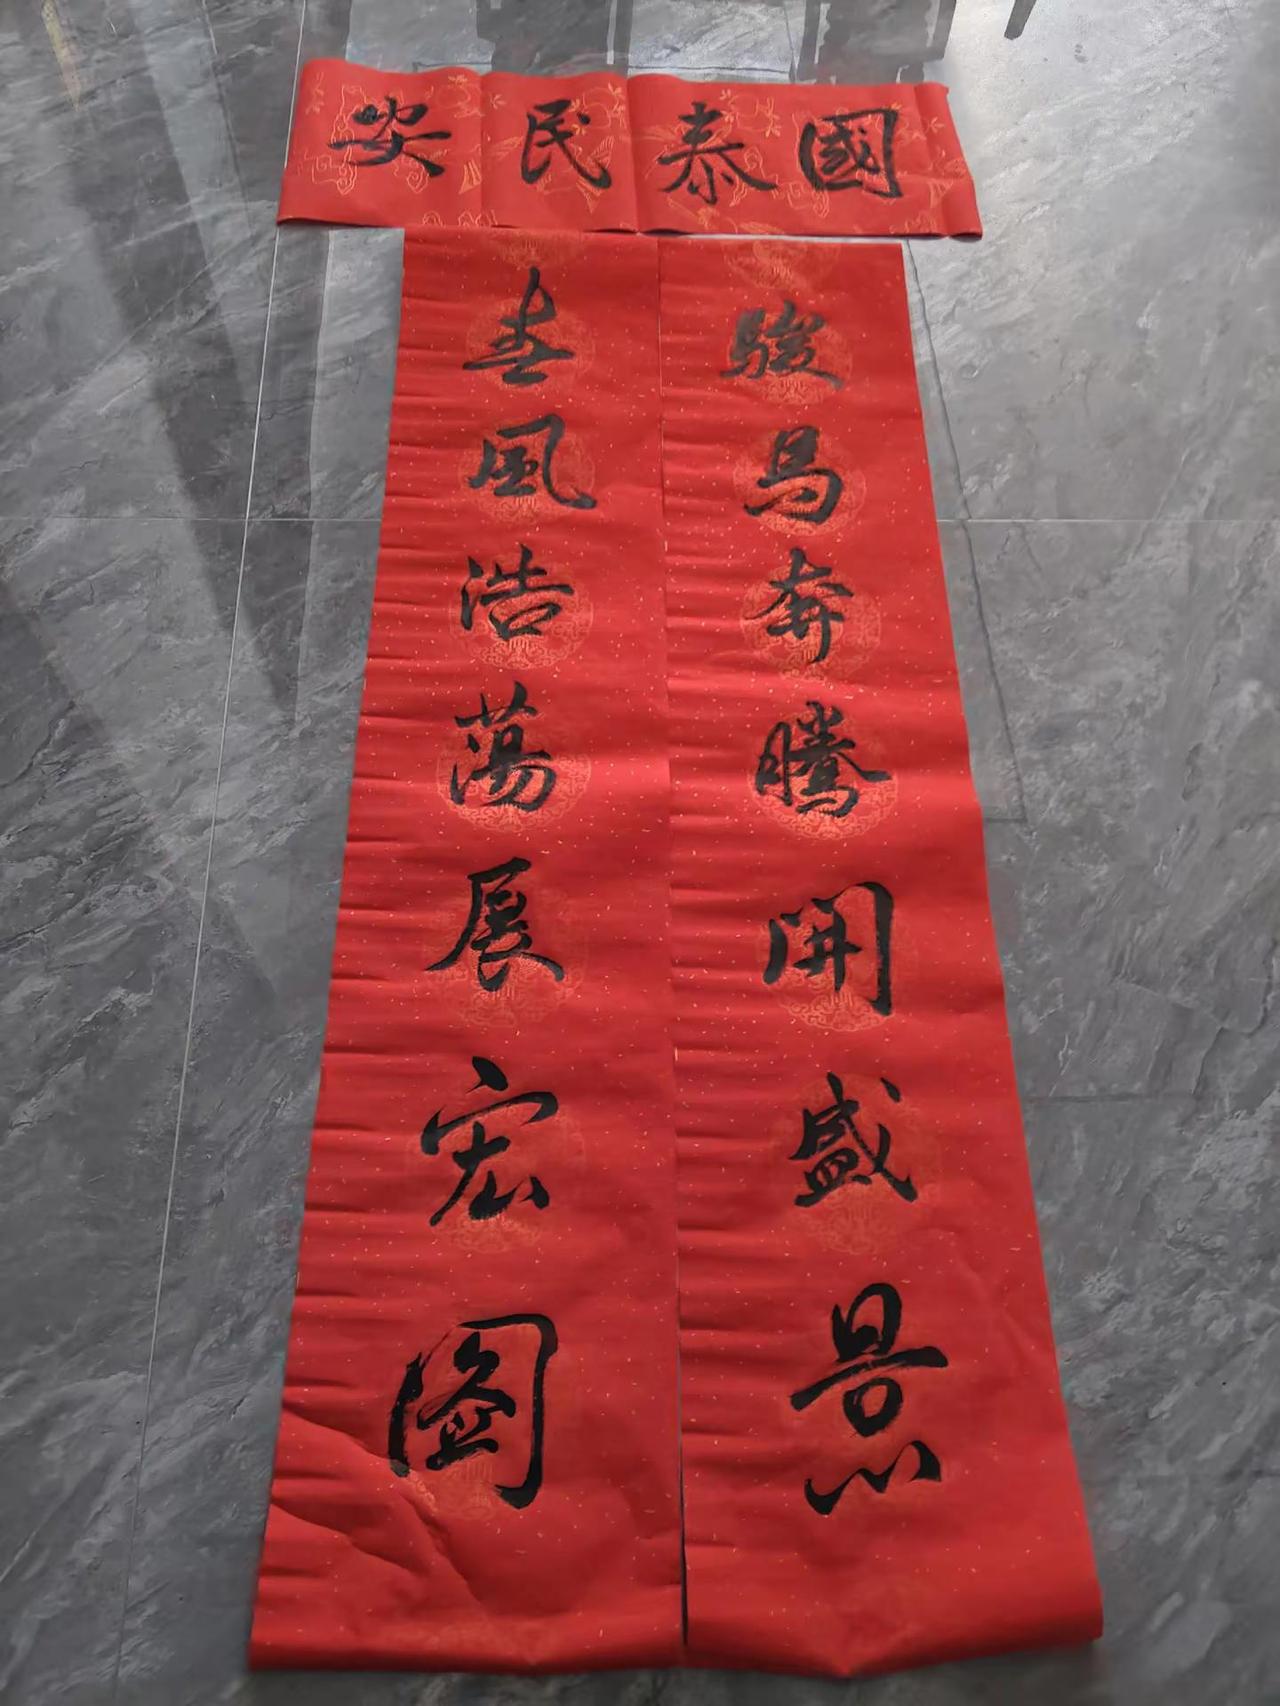 國泰民安
骏馬奔騰開盛景
春風浩蕩展宏图